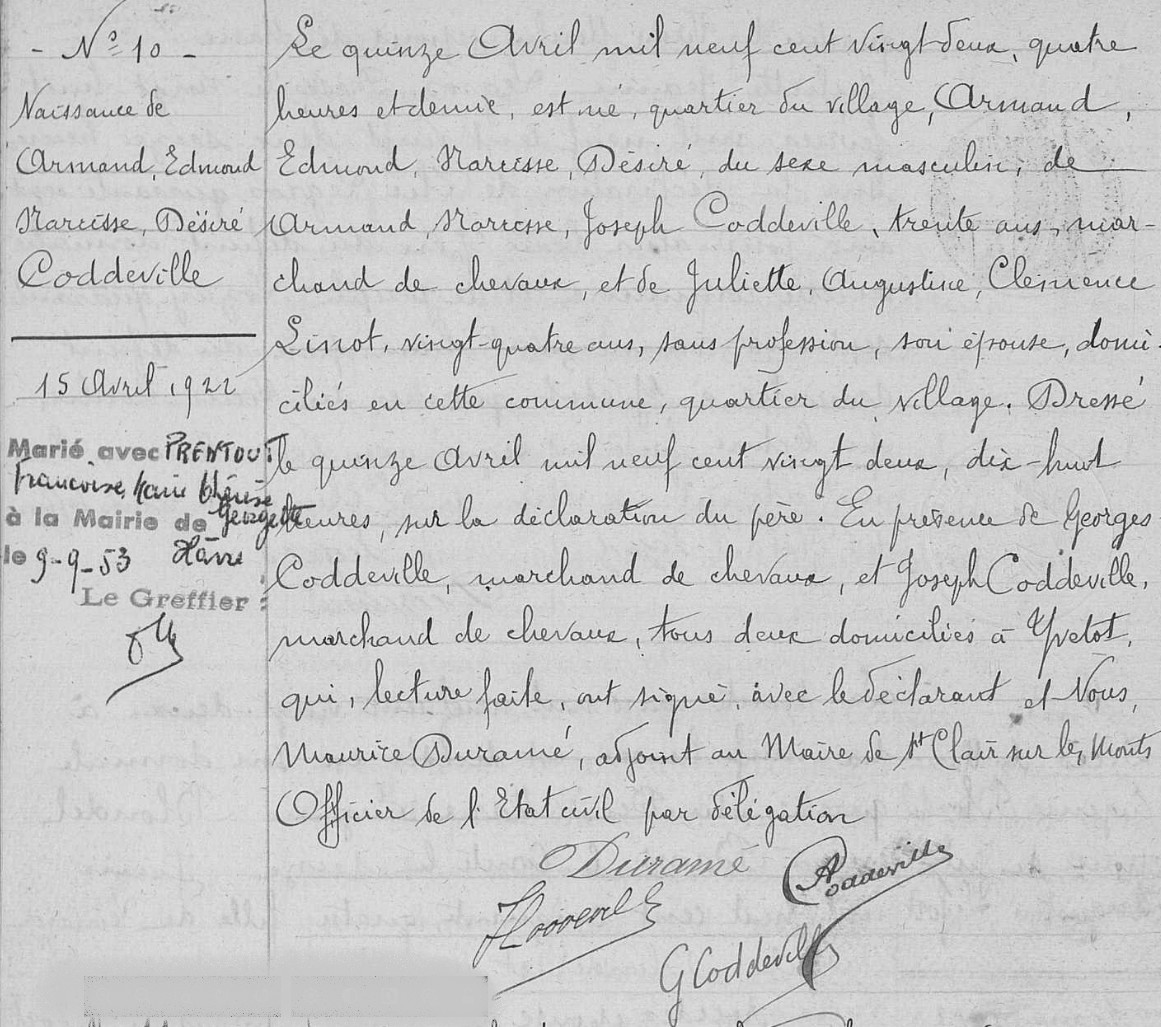 - Nº 10 -
Naissance de
Armand, Edmond
Narcisse, Désiré
Coddeville
15 Avril 1922
Marié avec PRENTOUT
Françoise, Marie Thérèse
Georgette
à la Mairie de
le 9-9-53 Hâvre
Le Greffier :
Le quinze Avril mil neuf cent vingt-deux, quatre
heures et demie, est né, quartier du village, Armand,
Edmond, Narcisse, Désiré, du sexe masculin, de
Armand, Narcisse, Joseph Coddeville, trente ans, mar-
chand de chevaux, et de Juliette, Augustine, Clémence
Linot, vingt-quatre ans, sans profession, son épouse, domi-
ciliés en cette commune, quartier du village. Dressé
le quinze Avril mil neuf cent vingt deux, dix-huit
heures, sur la déclaration du père. En présence de Georges
Coddeville, marchand de chevaux, et Joseph Coddeville,
marchand de chevaux, tous deux domiciliés à Yvetot,
qui, lecture faite, ont signé avec le déclarant et Nous,
Maurice Duramé, adjoint au Maire de St Clair sur les Monts
Officier de l'Etat civil par délégation
Duramé
A Coddeville
J Coddeville
G Coddeville